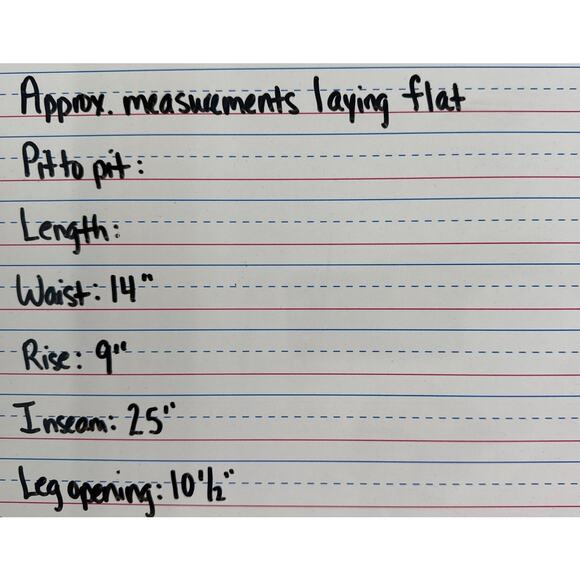 Approx. measurements laying flat
Pit to pit:
Length:
Waist: 14"
Rise: 9"
Inseam: 25"
Leg opening: 10 1/2"